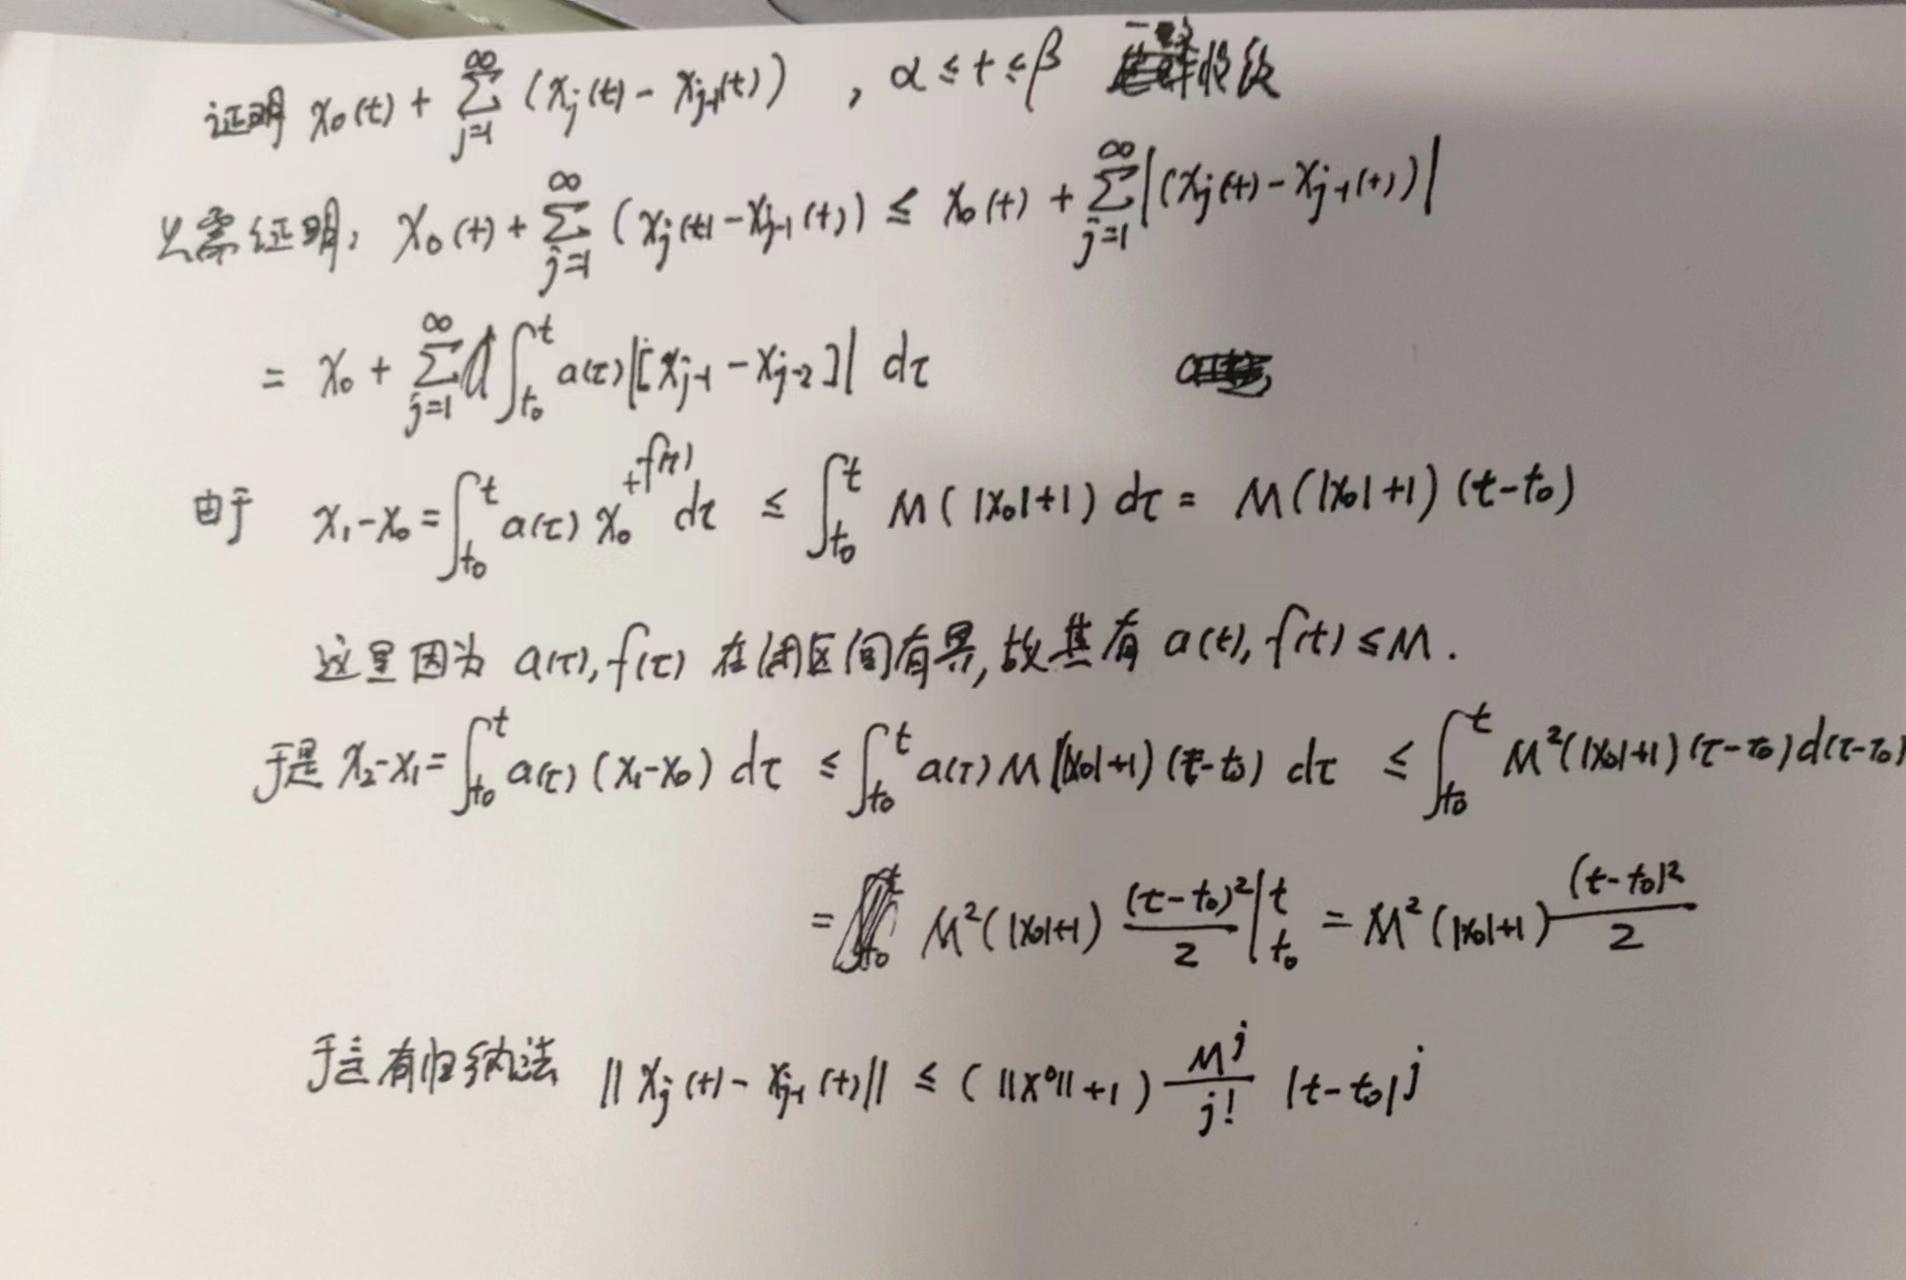 证明 x₀(t) + ∑_{j=1}^{∞} (x_j(t) - x_{j-1}(t)) , α ≤ t ≤ β 收敛
只需证明: x₀(t) + ∑_{j=1}^{∞} (x_j(t) - x_{j-1}(t)) ≤ x₀(t) + ∑_{j=1}^{∞} |(x_j(t) - x_{j-1}(t))|
= x₀ + ∑_{j=1}^{∞} ∫_{t₀}^{t} a(τ) |[x_{j-1} - x_{j-2}]| dτ
由于 x₁ - x₀ = ∫_{t₀}^{t} a(τ) x₀ + f(τ) dτ ≤ ∫_{t₀}^{t} M(|x₀|+1) dτ = M(|x₀|+1)(t-t₀)
这里因为 a(τ), f(τ) 在闭区间有界, 故其有 a(t), f(t) ≤ M.
于是 x₂ - x₁ = ∫_{t₀}^{t} a(τ) (x₁ - x₀) dτ ≤ ∫_{t₀}^{t} a(τ) M(|x₀|+1) (τ-t₀) dτ ≤ ∫_{t₀}^{t} M²(|x₀|+1) (τ-τ₀) d(τ-τ₀)
= M²(|x₀|+1) (τ-t₀)²/2 |_{t₀}^{t} = M²(|x₀|+1) (t-t₀)²/2
于是有归纳法 ‖x_j(t) - x_{j-1}(t)‖ ≤ (‖x⁰‖+1) M^j/j! |t-t₀|^j